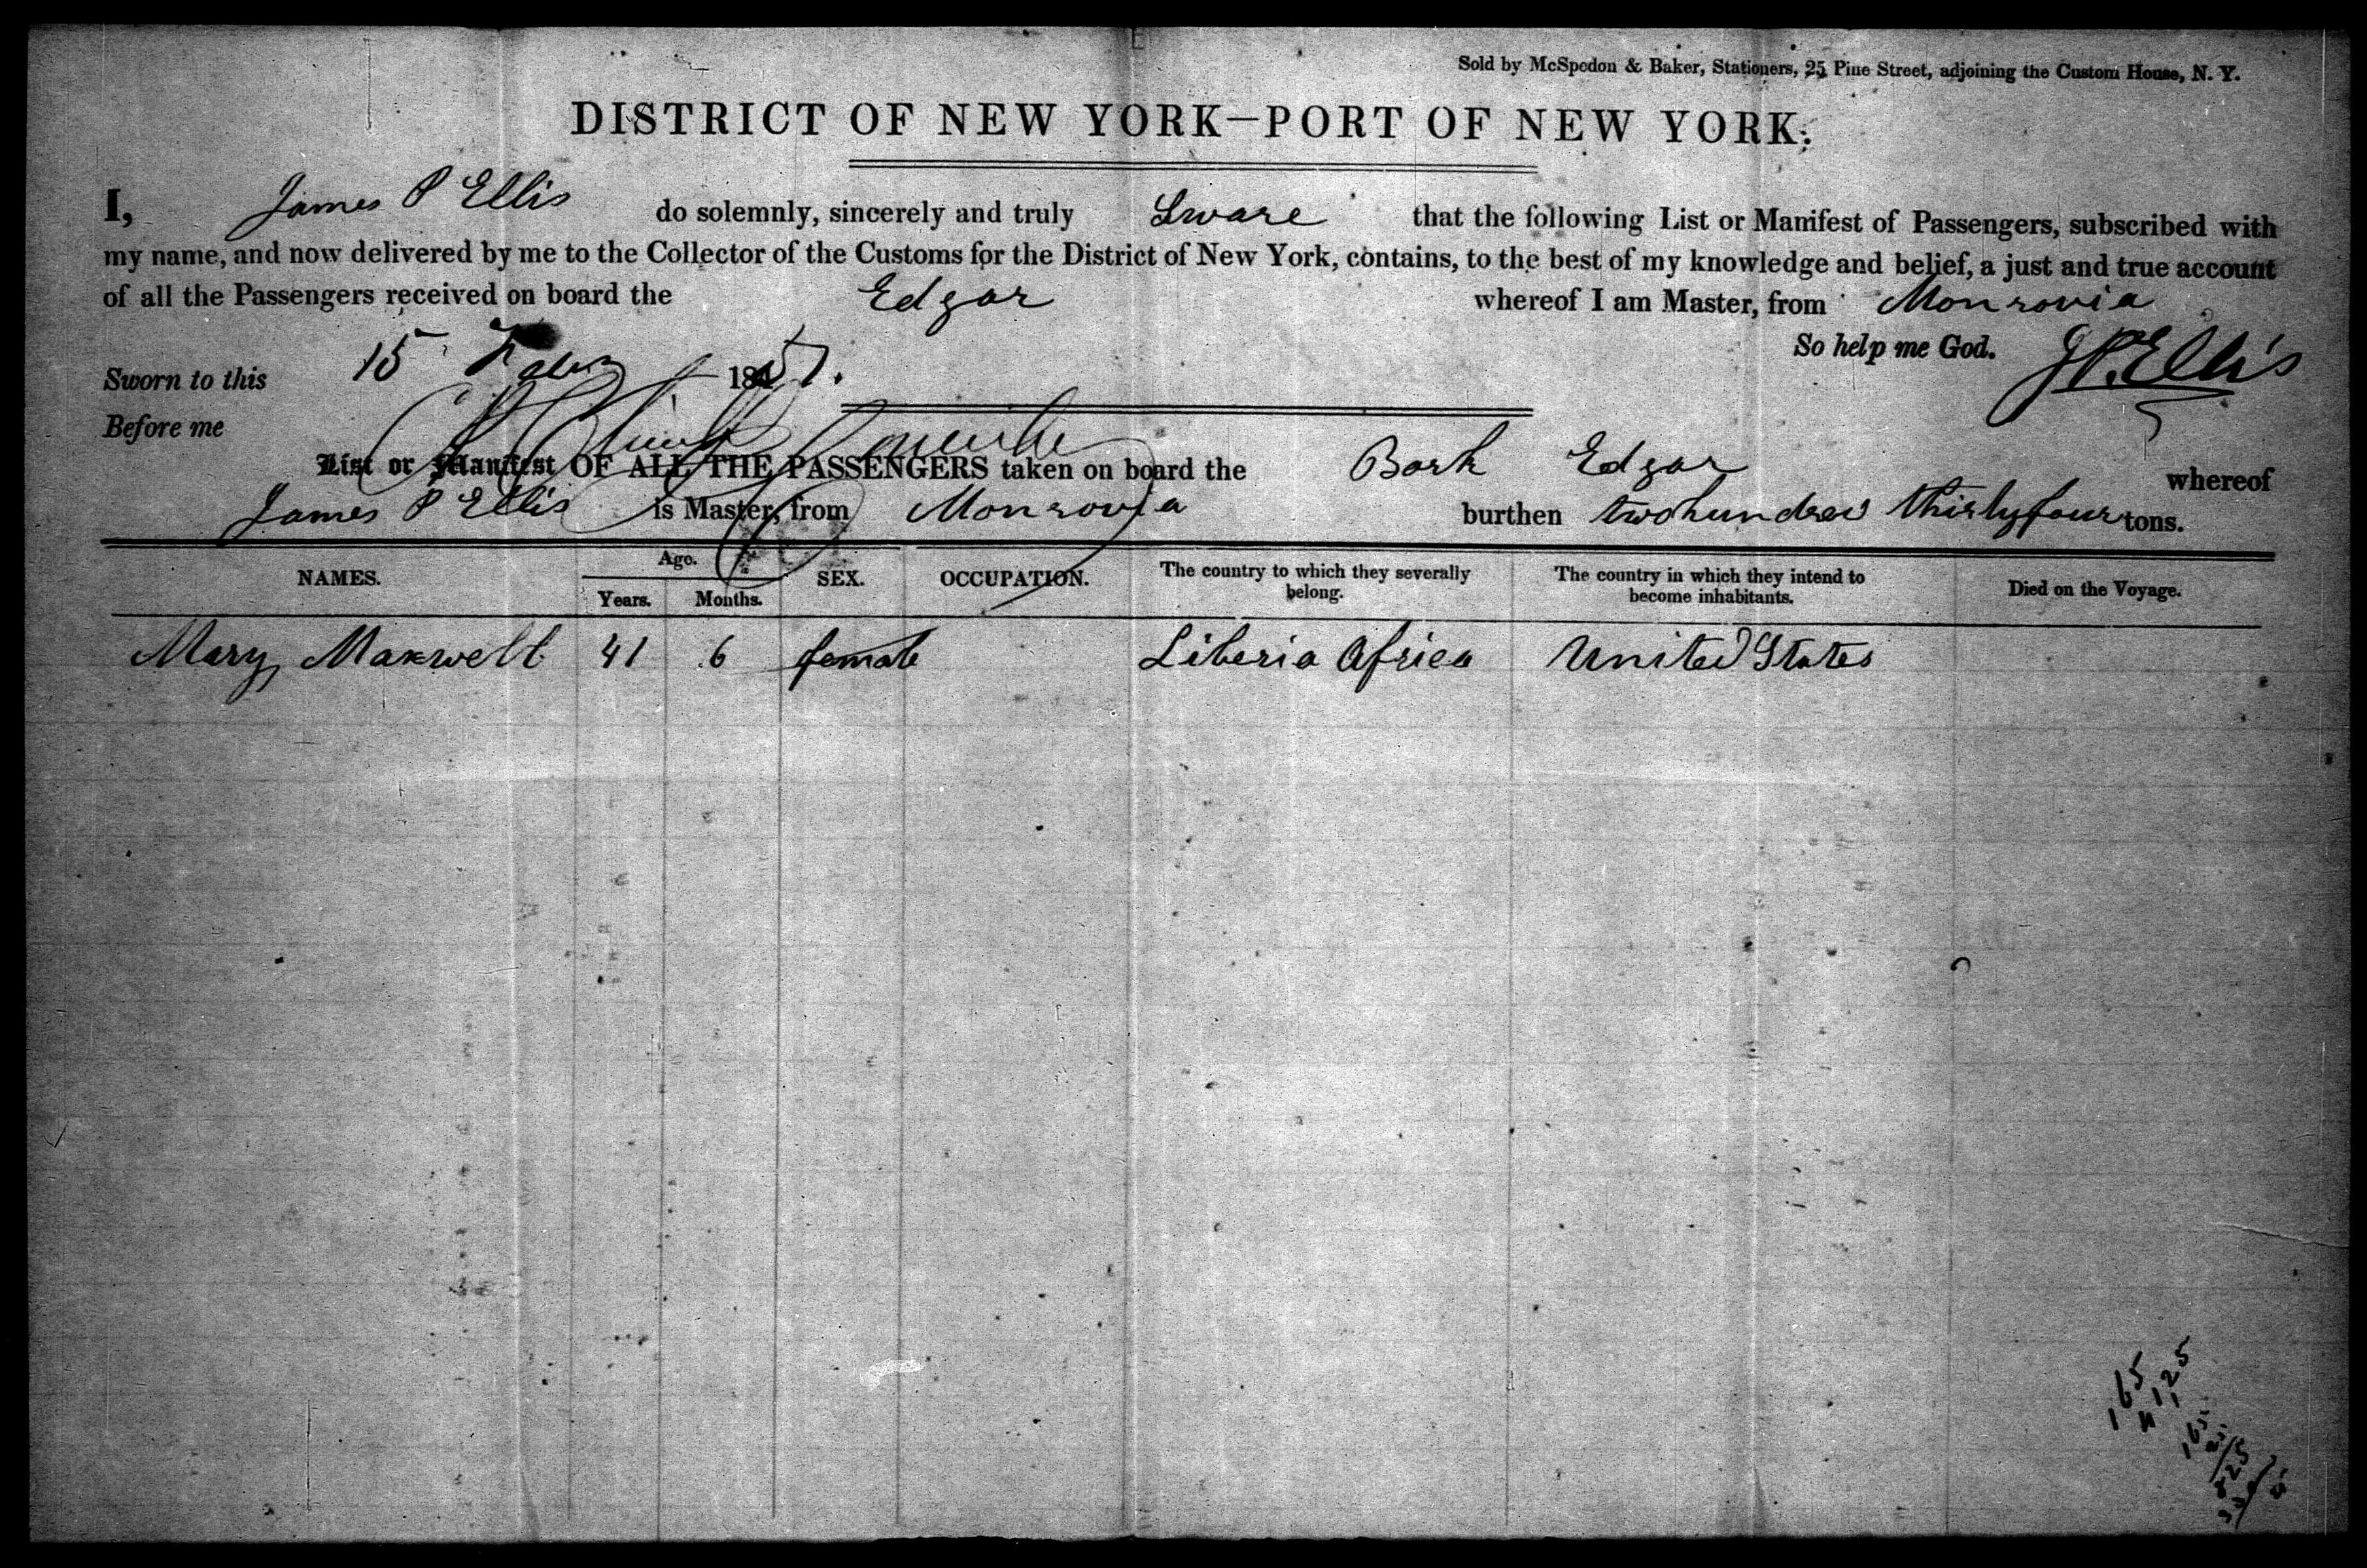 Sold by McSpedon & Baker, Stationers, 25 Pine Street, adjoining the Custom House, N. Y.
DISTRICT OF NEW YORK—PORT OF NEW YORK.
I, James P Ellis do solemnly, sincerely and truly Sware that the following List or Manifest of Passengers, subscribed with
my name, and now delivered by me to the Collector of the Customs for the District of New York, contains, to the best of my knowledge and belief, a just and true account
of all the Passengers received on board the Edgar whereof I am Master, from Monrovia
So help me God. J P. Ellis
Sworn to this 15 1851.
Before me
List or Manifest OF ALL THE PASSENGERS taken on board the Bark Edgar whereof
James P Ellis is Master, from Monrovia burthen twohundred thirtyfour tons.
NAMES. Age. Years. Months. SEX. OCCUPATION. The country to which they severally belong. The country in which they intend to become inhabitants. Died on the Voyage.
Mary Maxwell 41 6 female Liberia Africa United States
165
125
165